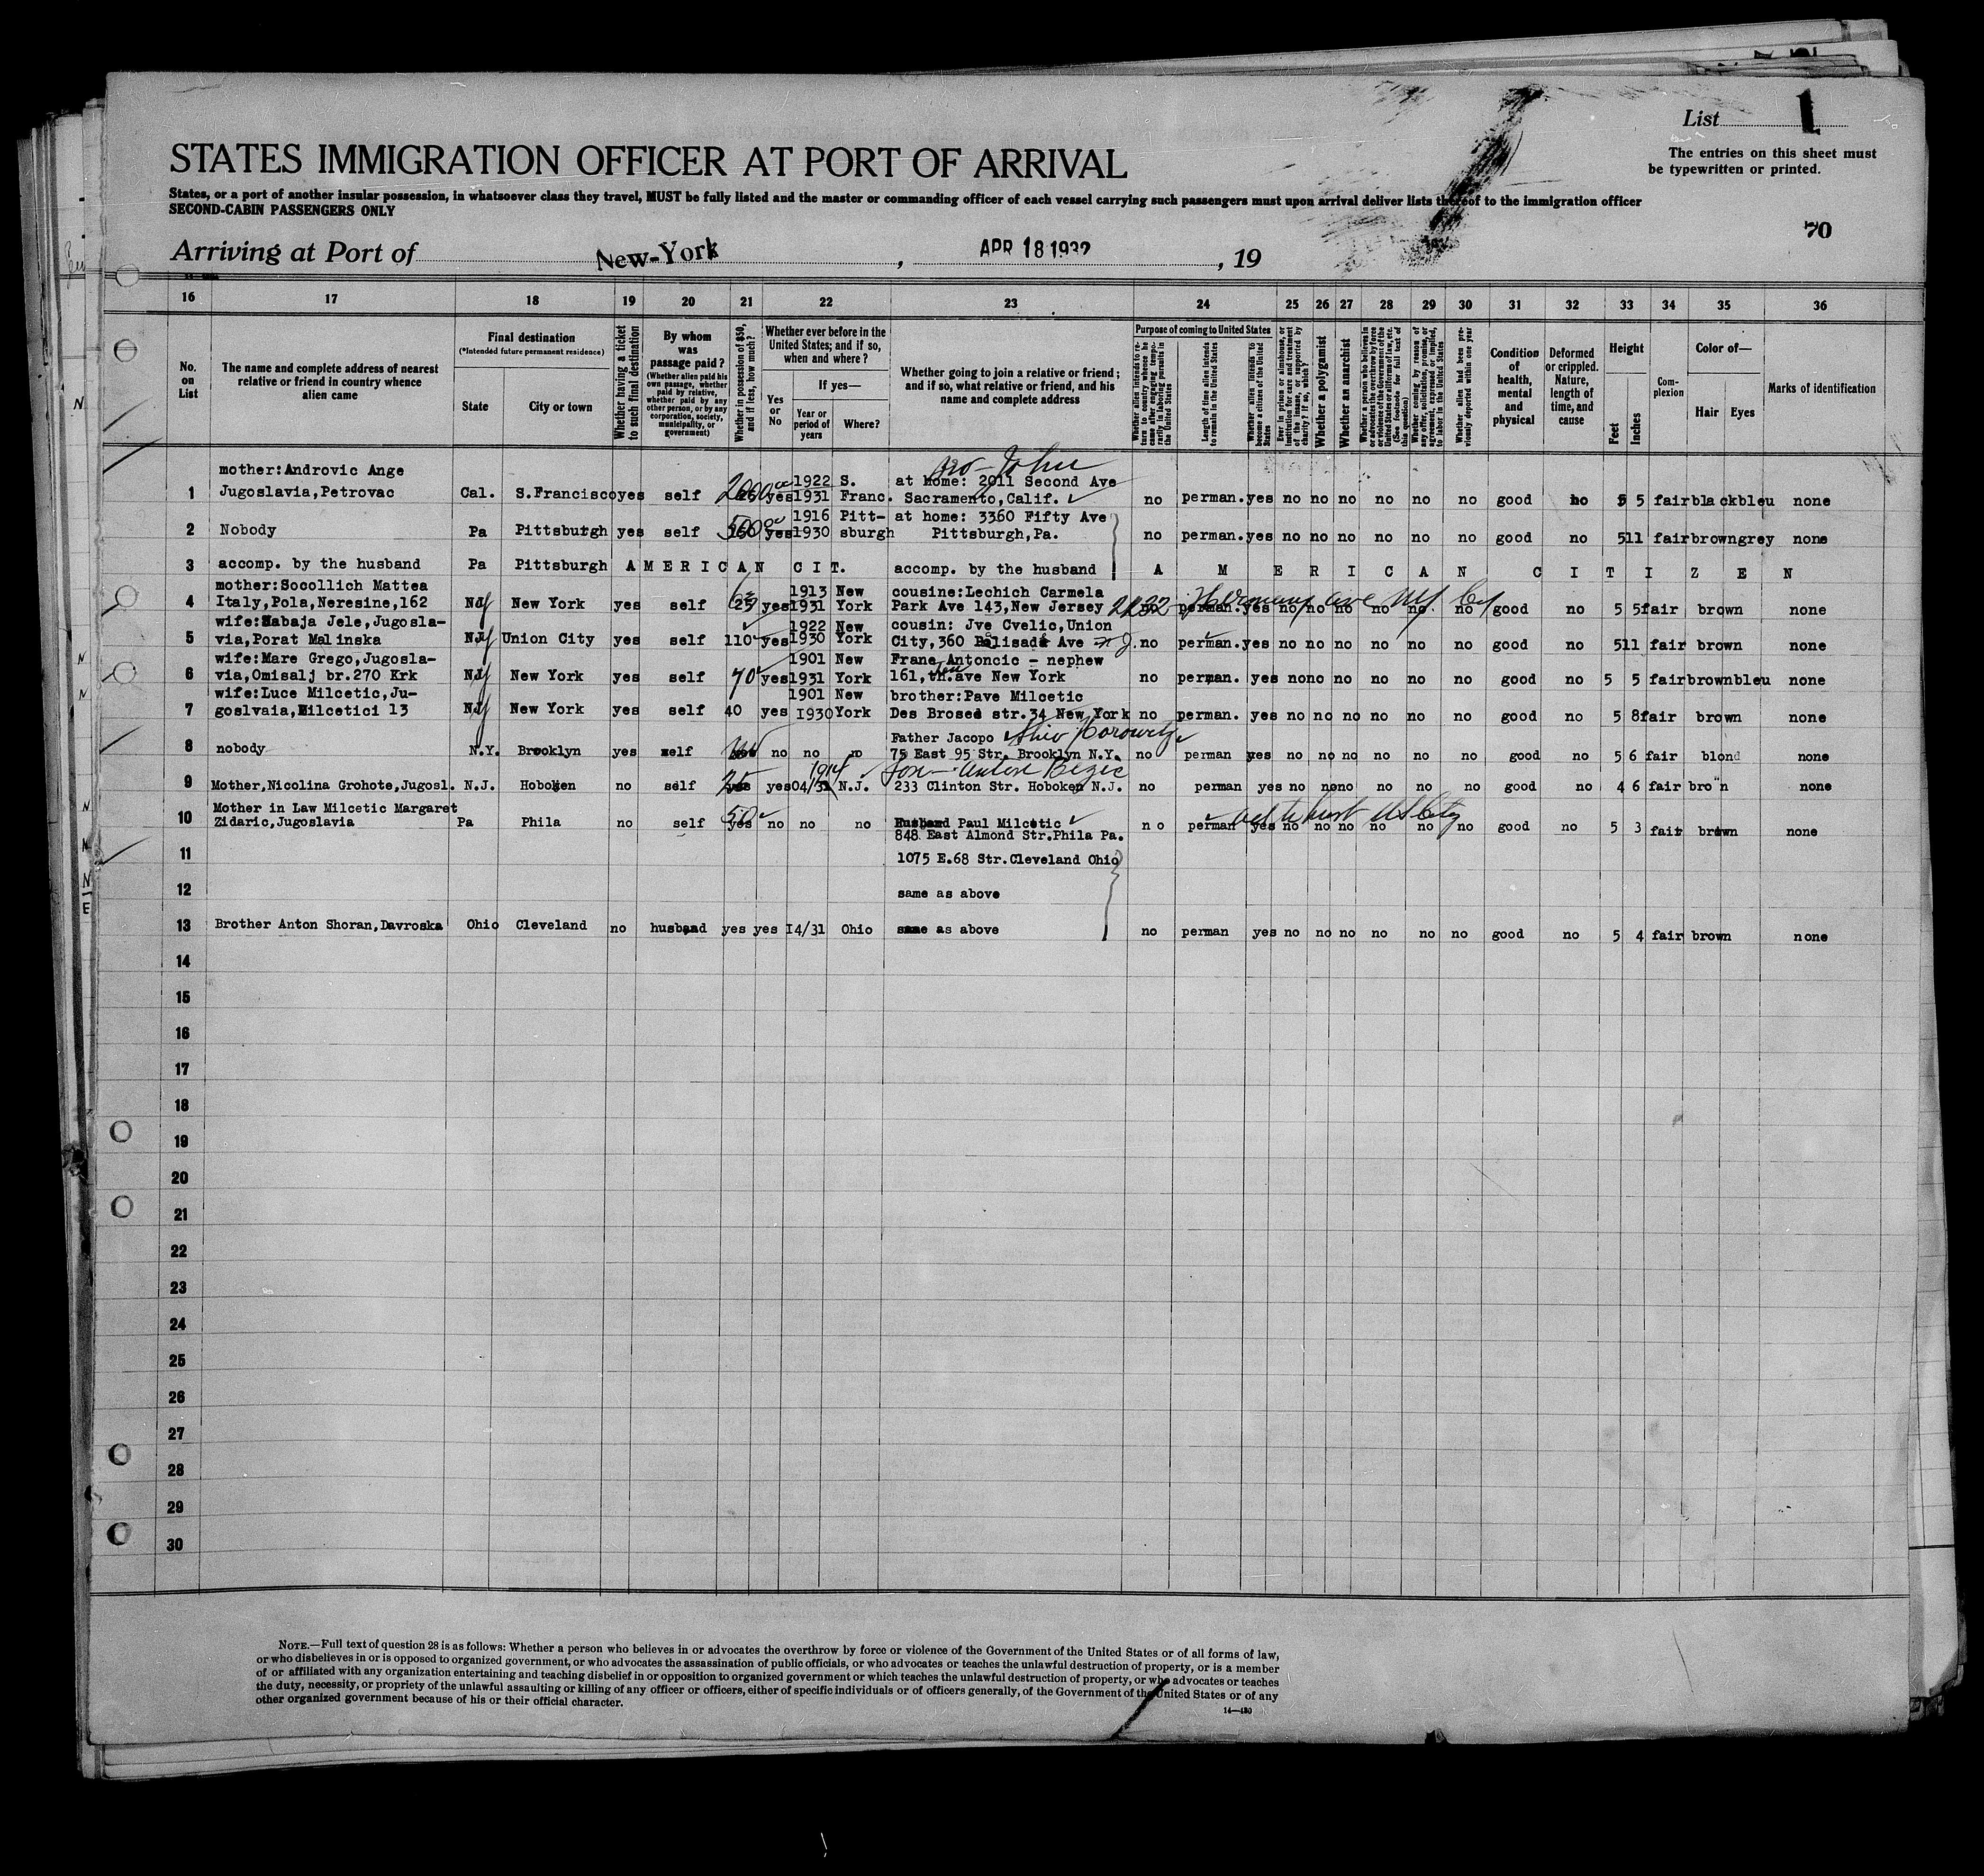 List 1
STATES IMMIGRATION OFFICER AT PORT OF ARRIVAL
The entries on this sheet must
be typewritten or printed.
States, or a port of another insular possession, in whatsoever class they travel, MUST be fully listed and the master or commanding officer of each vessel carrying such passengers must upon arrival deliver lists thereof to the immigration officer
SECOND-CABIN PASSENGERS ONLY
70
Arriving at Port of New-York , APR 18 1932 , 19
16 17 18 19 20 21 22 23 24 25 26 27 28 29 30 31 32 33 34 35 36
No. on List
The name and complete address of nearest relative or friend in country whence alien came
Final destination
(*Intended future permanent residence)
State
City or town
Whether having a ticket to such final destination
By whom was passage paid?
(Whether alien paid his own passage, whether paid by relative, whether paid by any other person, or by any corporation, society, municipality, or government)
Whether in possession of $50, and if less, how much?
Whether ever before in the United States; and if so, when and where?
Yes or No
If yes—
Year or period of years
Where?
Whether going to join a relative or friend; and if so, what relative or friend, and his name and complete address
Purpose of coming to United States
Whether alien intends to return to country whence he came after engaging temporarily in laboring pursuits in the United States
Length of time alien intends to remain in the United States
Whether alien intends to become a citizen of the United States
Ever in prison or almshouse, or institution for care and treatment of the insane, or supported by charity? If so, which?
Whether a polygamist
Whether an anarchist
Whether a person who believes in or advocates the overthrow by force or violence of the Government of the United States or all forms of law, etc. (See footnote for full text of this question)
Whether coming by reason of any offer, solicitation, promise, or agreement, expressed or implied, to labor in the United States
Whether alien had been previously deported within one year
Condition of health, mental and physical
Deformed or crippled. Nature, length of time, and cause
Height
Feet
Inches
Complexion
Color of—
Hair Eyes
Marks of identification
mother:Androvic Ange no - John
1922 S. at home: 2011 Second Ave
1 Jugoslavia,Petrovac Cal. S.Francisco yes self 2000 yes 1931 Franc. Sacramento,Calif. no perman. yes no no no no no no good no 5 5 fair black bleu none
1916 Pitt- at home: 3360 Fifty Ave
2 Nobody Pa Pittsburgh yes self 500 yes 1930 sburgh Pittsburg,Pa. no perman. yes no no no no no no good no 5 11 fair brown grey none
3 accomp. by the husband Pa Pittsburgh AMERICAN CIT. accomp. by the husband A M E R I C A N C I T I Z E N
mother:Socollich Mattea 1913 New cousine:Lechich Carmela
4 Italy,Pola,Neresine,162 NY New York yes self yes 1931 York Park Ave 143,New Jersey no perman. yes no no no no no no good no 5 5 fair brown none
wife:Habaja Jele,Jugosla- 1922 New cousin: Jve Cvelic,Union
5 via,Porat Malinska NJ Union City yes self 110 yes 1930 York City,360 Palisade Ave N.J. no perman. yes no no no no no no good no 5 11 fair brown none
wife:Mare Grego,Jugosla- 1901 New Frane Antoncic - nephew
6 via,Omisalj br.270 Krk NY New York yes self 70 yes 1931 York 161,ten th.ave New York no perman. yes no no no no no no good no 5 5 fair brown bleu none
wife:Luce Milcetic,Ju- 1901 New brother:Pave Milcetic
7 goslvaia,Milcetici 13 NY New York yes self 40 yes 1930 York Des Brosed str.34 New York no perman. yes no no no no no no good no 5 8 fair brown none
Father Jacopo Horowitz
8 nobody N.Y. Brooklyn yes self no no no 75 East 95 Str. Brooklyn N.Y. no perman yes no no no no no no good no 5 6 fair blond none
1914 son - Anton Bezic
9 Mother,Nicolina Grohote,Jugosl. N.J. Hoboken no self 25 yes 04/31 N.J. 233 Clinton Str. Hoboken N.J. no perman yes no no no no no no good no 4 6 fair bro n none
Mother in Law Milcetic Margaret
10 Zidaric,Jugoslavia Pa Phila no self 50 yes no no no Husband Paul Milcetic no perman yes no no no no no no good no 5 3 fair brown none
848 East Almond Str.Phila Pa.
11 1075 E.68 Str.Cleveland Ohio
12 same as above
13 Brother Anton Shoran,Davroska Ohio Cleveland no husband yes yes 14/31 Ohio same as above no perman yes no no no no no no good no 5 4 fair brown none
14
15
16
17
18
19
20
21
22
23
24
25
26
27
28
29
30
NOTE.—Full text of question 28 is as follows: Whether a person who believes in or advocates the overthrow by force or violence of the Government of the United States or of all forms of law,
or who disbelieves in or is opposed to organized government, or who advocates the assassination of public officials, or who advocates or teaches the unlawful destruction of property, or is a member
of or affiliated with any organization entertaining and teaching disbelief in or opposition to organized government or which teaches the unlawful destruction of property, or who advocates or teaches
the duty, necessity, or propriety of the unlawful assaulting or killing of any officer or officers, either of specific individuals or of officers generally, of the Government of the United States or of any
other organized government because of his or their official character.
14—430